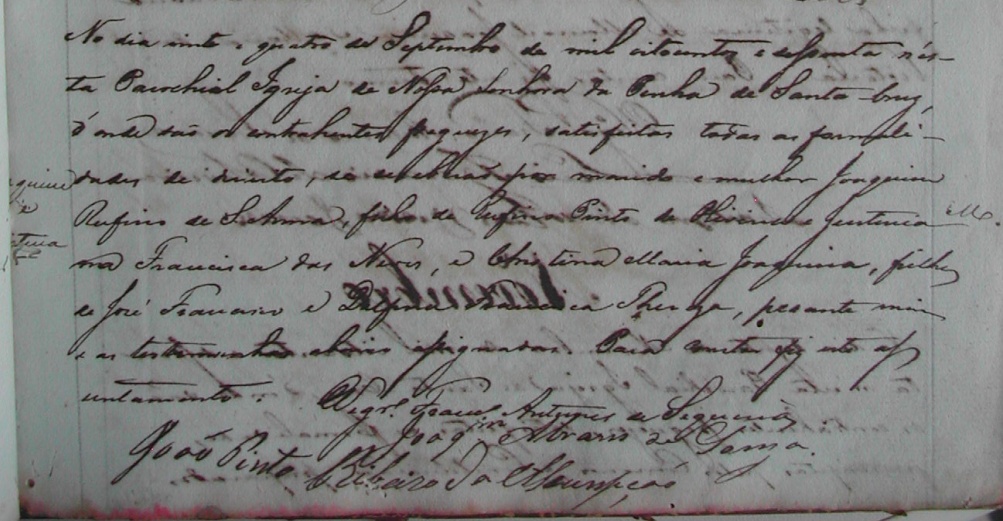 No dia vinte e quatro de Septembro de mil oitocentos e sessenta nes-
ta Parochial Igreja de Nossa Senhora da Penha de Santa Cruz,
d'onde são os contrahentes freguezes, satisfeitas todas as formali-
dades de direito, se receberão por marido e mulher Joaquim
Rufino de filho de Rufino Pinto de Oliveira e Justinia
na Francisca das Neves, e Christina Maria Joaquina, filha
de José Francisco e Delfina Francisca Thereza, perante mim
e as testemunhas abaixo assignadas. Para constar fiz este as
sentamento.
Vigr.º Franc.º Antunes de Siqueira
Joaq.im Alvares de
João Pinto Ribeiro da Assumpção